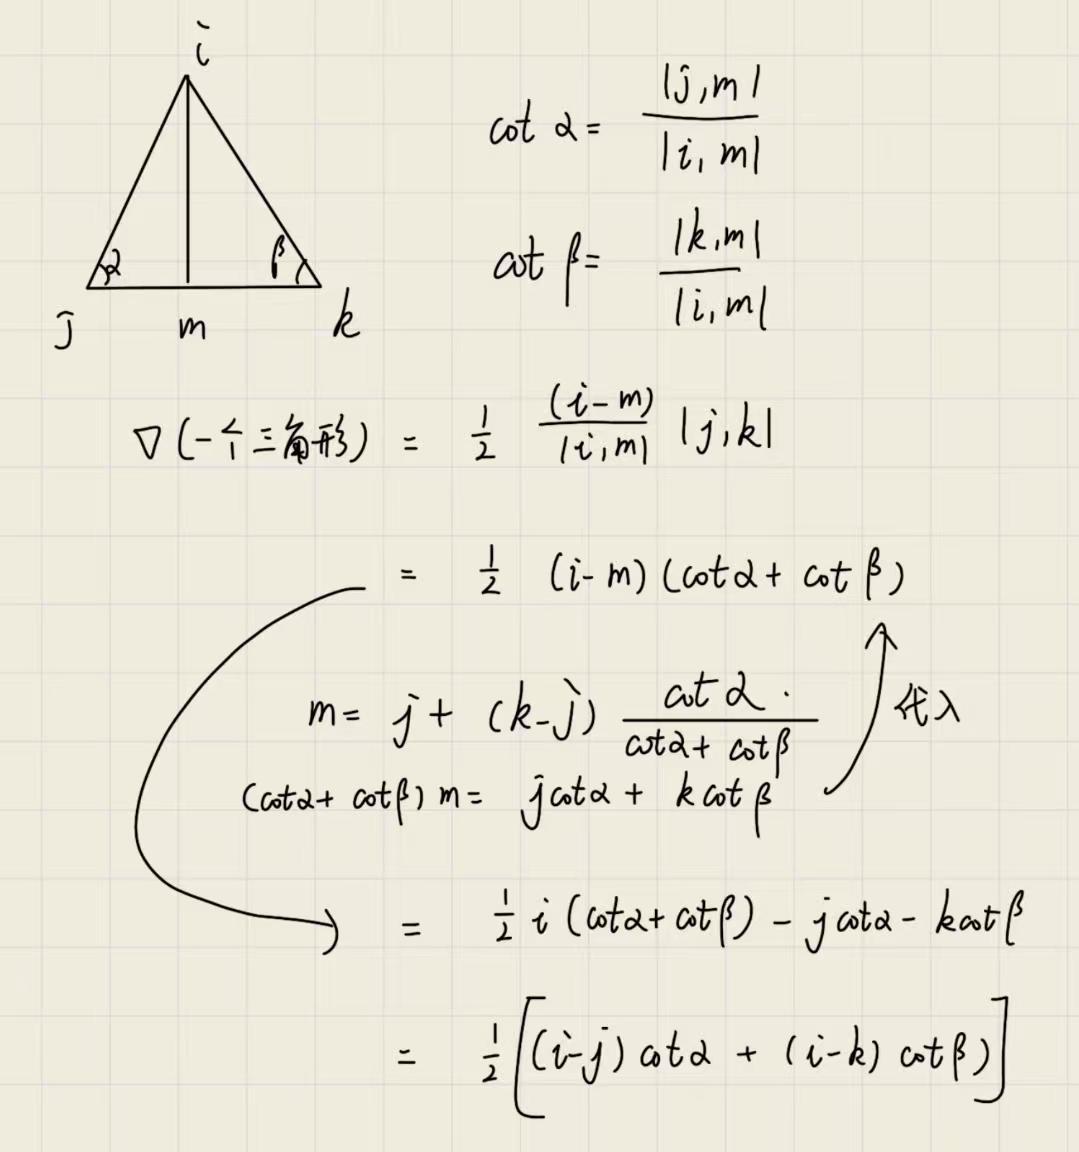 i
α β
j m k
cot α = |j,m| / |i,m|
cot β = |k,m| / |i,m|
∇(一个三角形) = 1/2 (i-m)/|i,m| |j,k|
= 1/2 (i-m)(cotα + cotβ)
m = j + (k-j) cotα / (cotα + cotβ)
代入
(cotα + cotβ) m = j cotα + k cotβ
= 1/2 i (cotα + cotβ) - j cotα - k cotβ
= 1/2 [(i-j) cotα + (i-k) cotβ)]